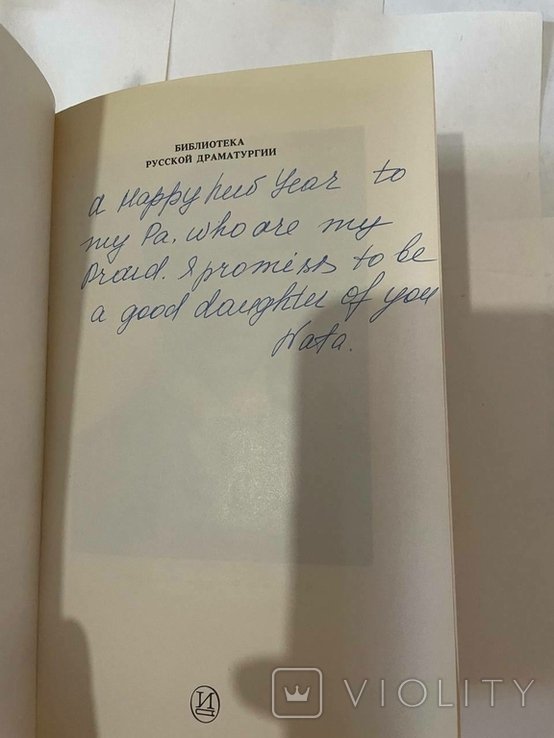 БИБЛИОТЕКА
РУССКОЙ ДРАМАТУРГИИ
a Happy new Year to
my Pa, who are my
Proud. I promiss to be
a good daughter of you
Nata.
И
VIOLITY